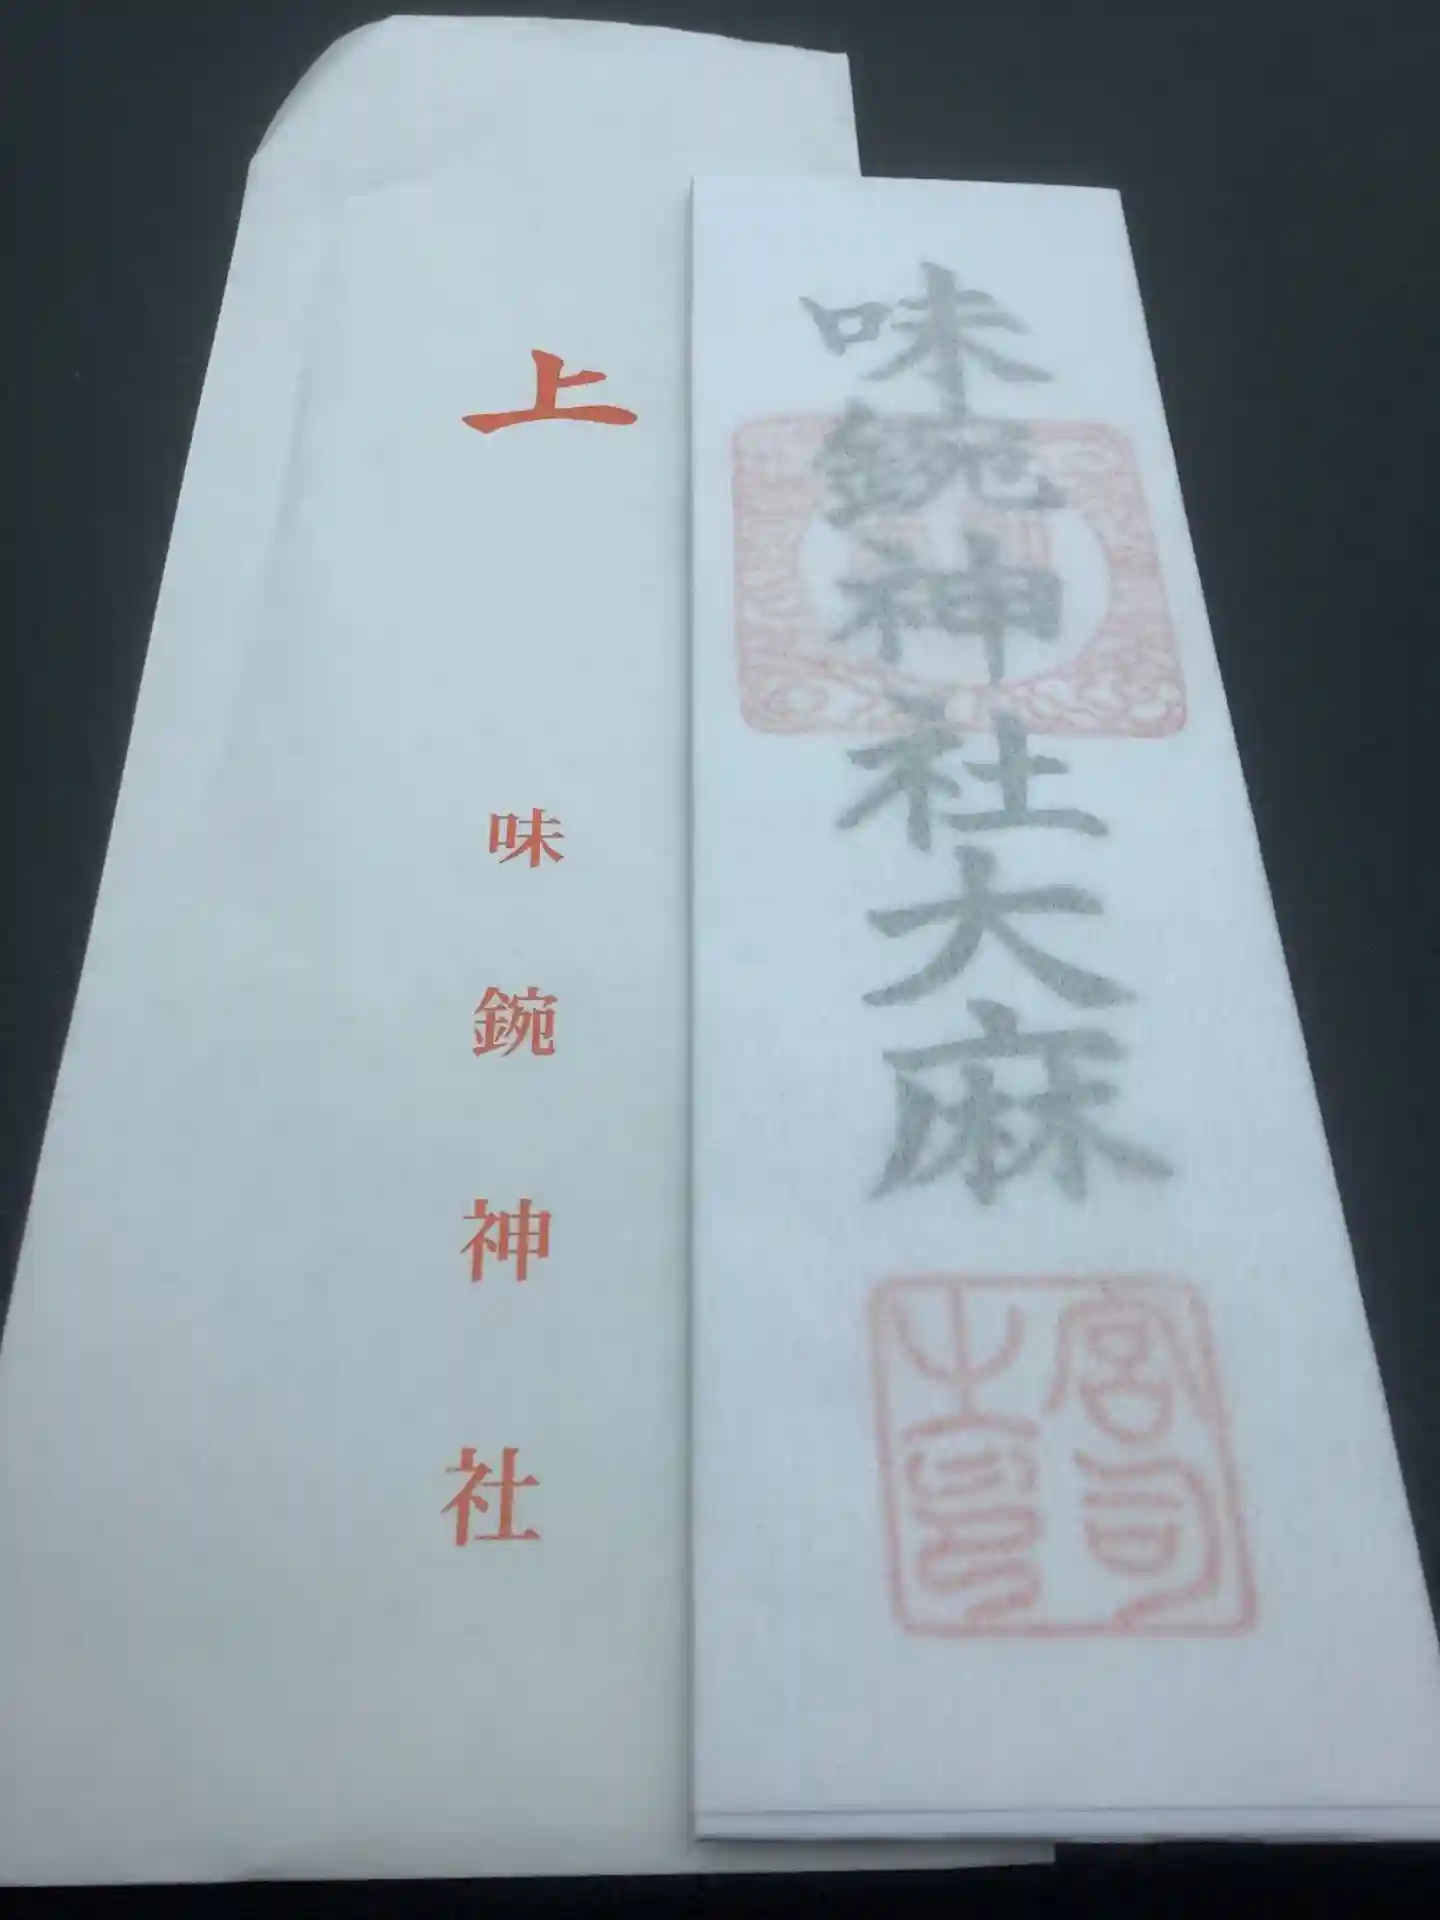 上
味鋺神社
味鋺神社大麻
宮司之印